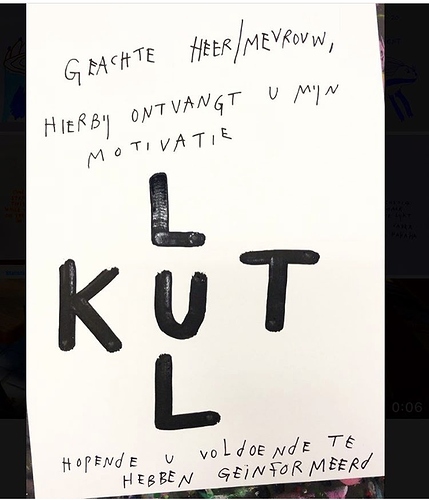 GEACHTE HEER/MEVROUW,
HIERBIJ ONTVANGT U MIJN
MOTIVATIE
L
KUT
L
HOPENDE U VOLDOENDE TE
HEBBEN GEINFORMEERD
0:06